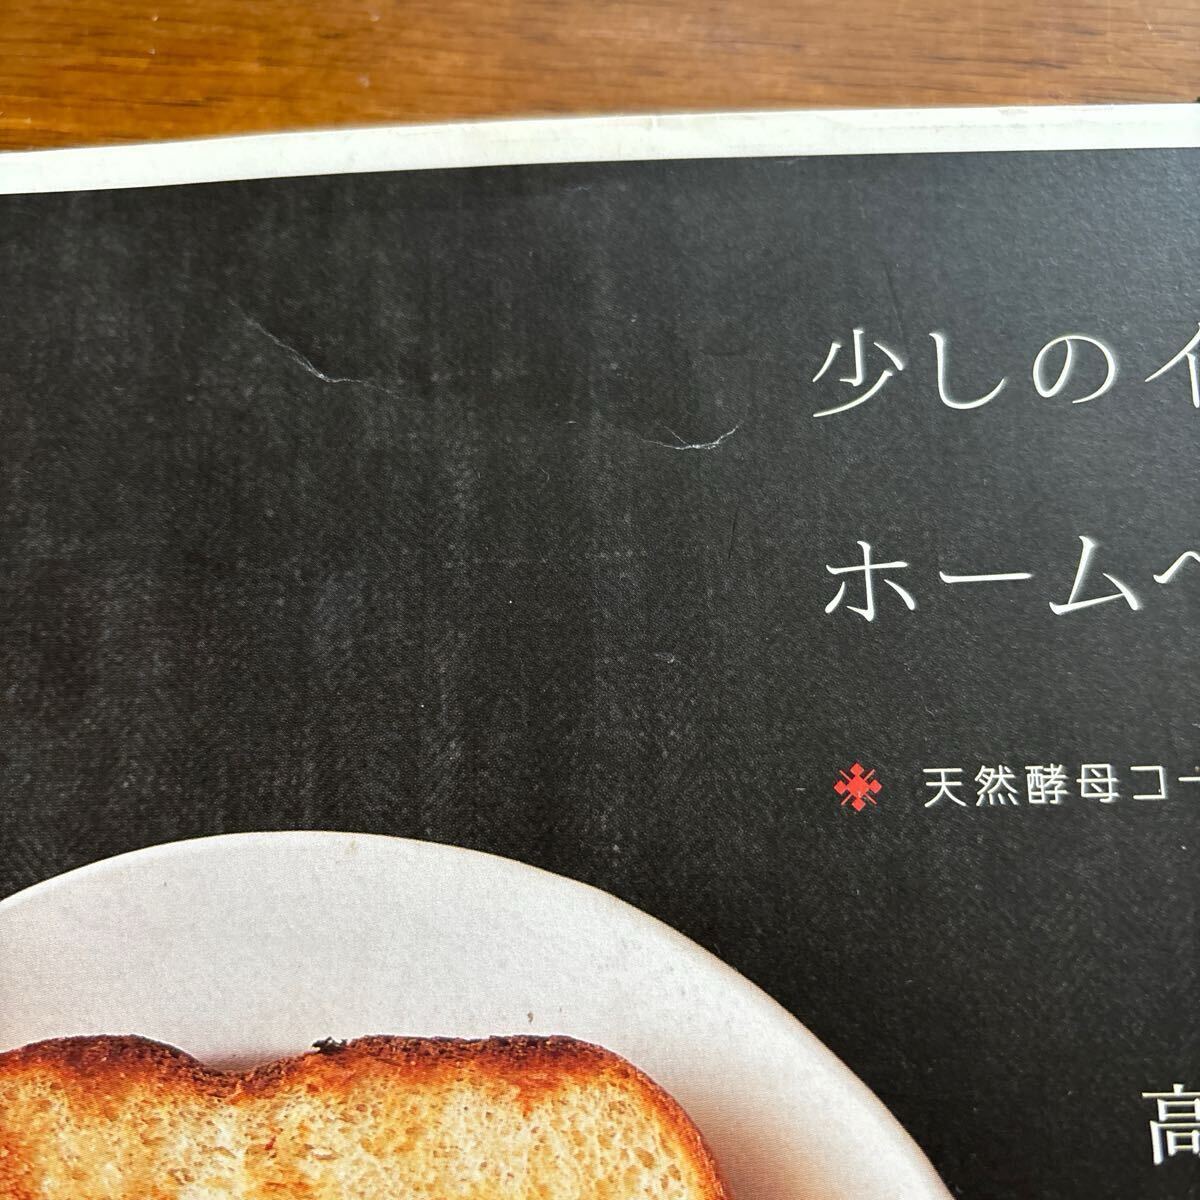 少しのイ
ホームベ
天然酵母コー
高